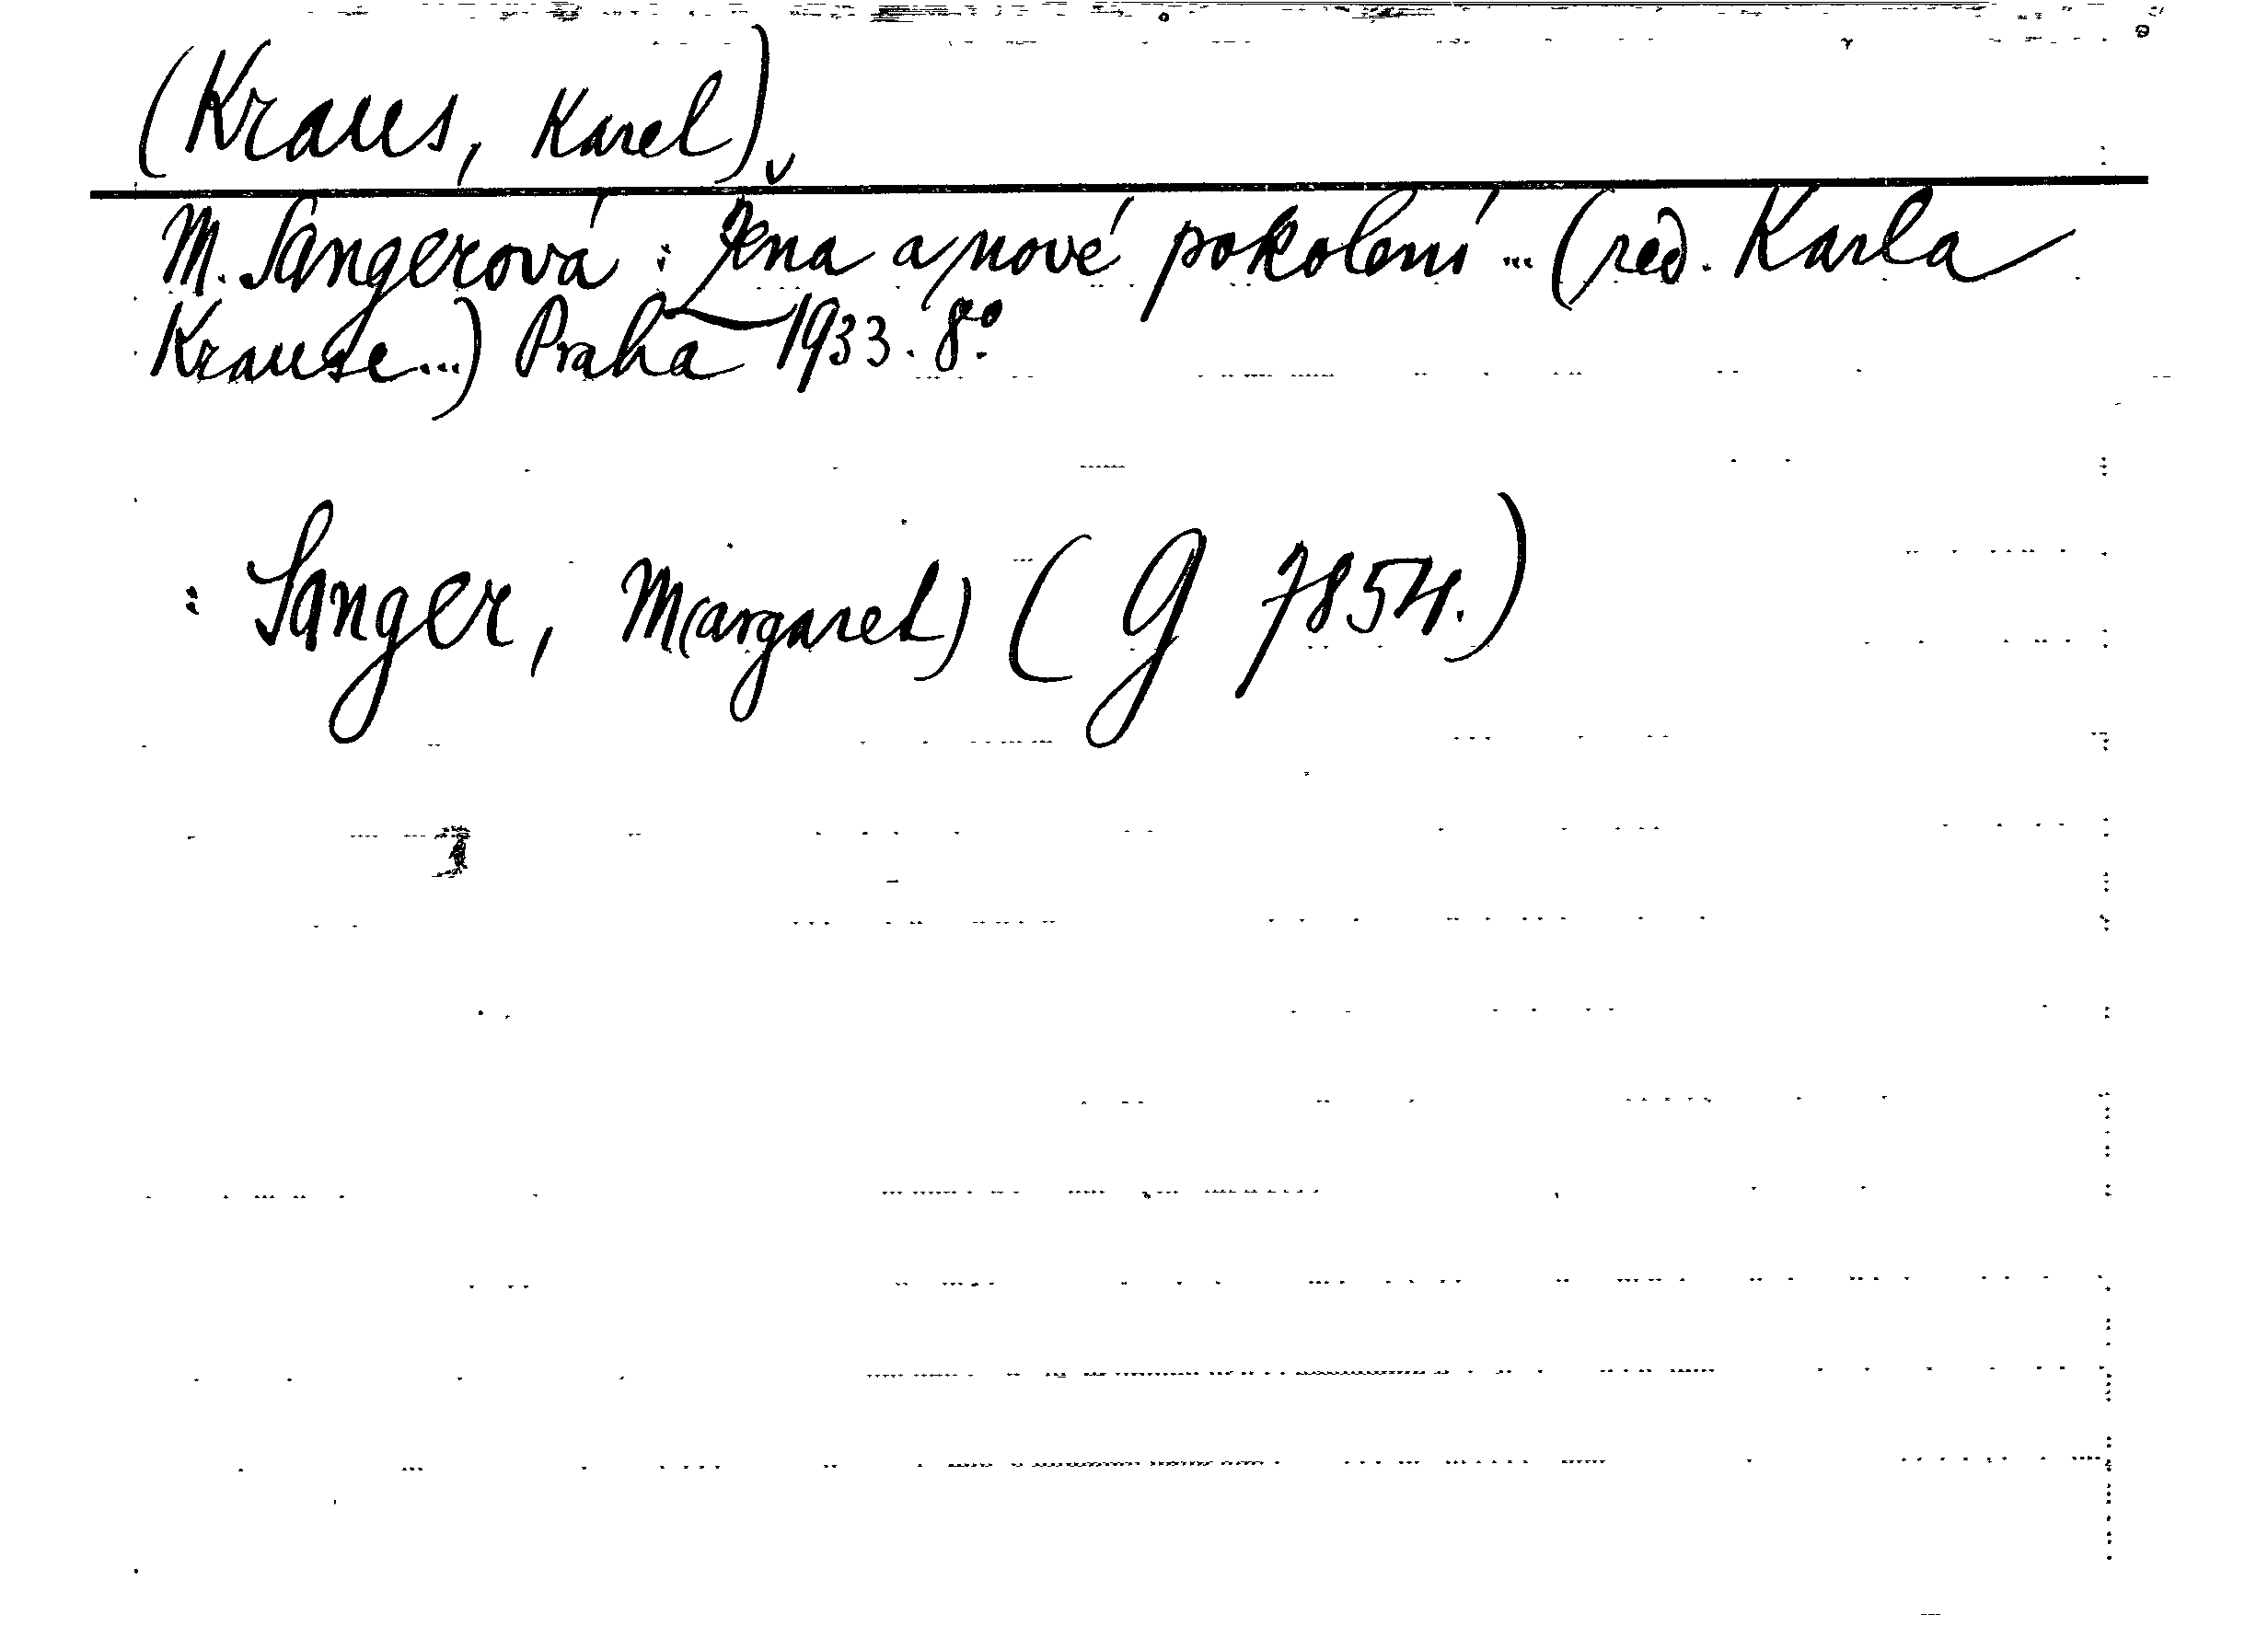 (Kraus, Karel)
M. Sangerová : Žena a nové pokolení ... (red. Karla
Krause...) Praha 1933. 8°.
: Sanger, M(argaret) (G 7854.)